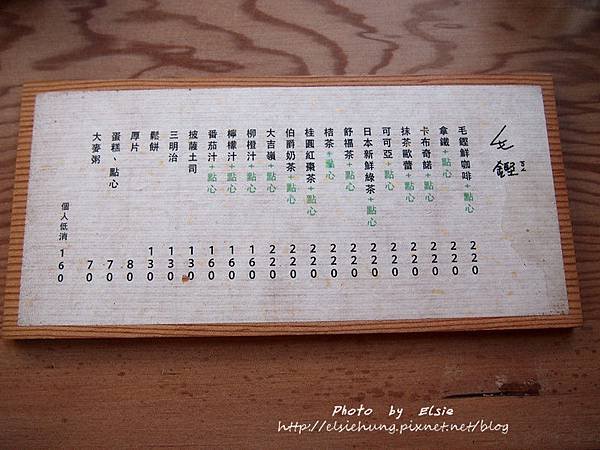 毛鏗
毛鏗鮮咖啡+點心 220
拿鐵+點心 220
卡布奇諾+點心 220
抹茶歐蕾+點心 220
可可亞+點心 220
日本新鮮綠茶+點心 220
舒福茶+點心 220
桔茶+點心 220
桂圓紅棗茶+點心 220
伯爵奶茶+點心 220
大吉嶺+點心 220
柳橙汁+點心 160
檸檬汁+點心 160
番茄汁+點心 160
披薩土司 130
三明治 130
鬆餅 130
厚片 80
蛋糕、點心 70
大麥粥 70
個人低消 160
Photo by Elsie
http://elsiehung.pixnet.net/blog